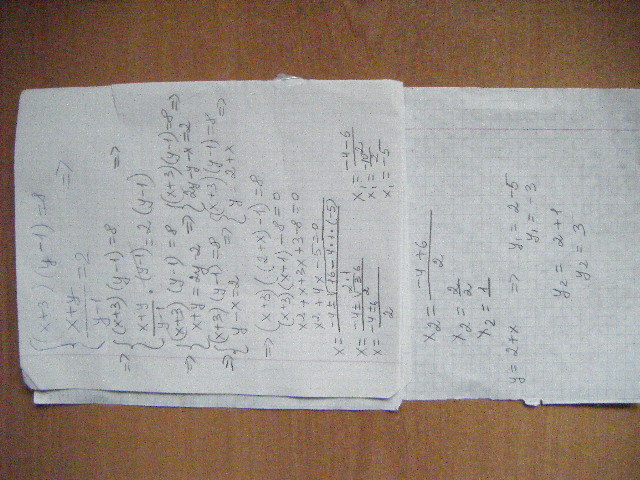 {(x+3)(y-1)=8
{x+y/y-1=2 =>
=> {(x+3)(y-1)=8 =>
{x+y/y-1 · (y-1)=2(y-1)
=> {(x+3)(y-1)=8 => {(x+3)(y-1)=8 =>
{x+y=2y-2 {2y-y-x=2
=> {(x+3)(y-1)=8 => {(x+3)(y-1)=8 =>
{y-x=2 {y=2+x
=> (x+3)((2+x)-1)=8
(x+3)(x+1)-8=0
x²+x+3x+3-8=0
x²+4x-5=0
x=-4±√16-4·1·(-5)/2·1
x=-4±√36/2
x=-4±6/2
x₁=-4-6/2
x₁=-10/2
x₁=-5
x₂=-4+6/2
x₂=2/2
x₂=1
y=2+x => y₁=2-5
y₁=-3
y₂=2+1
y₂=3